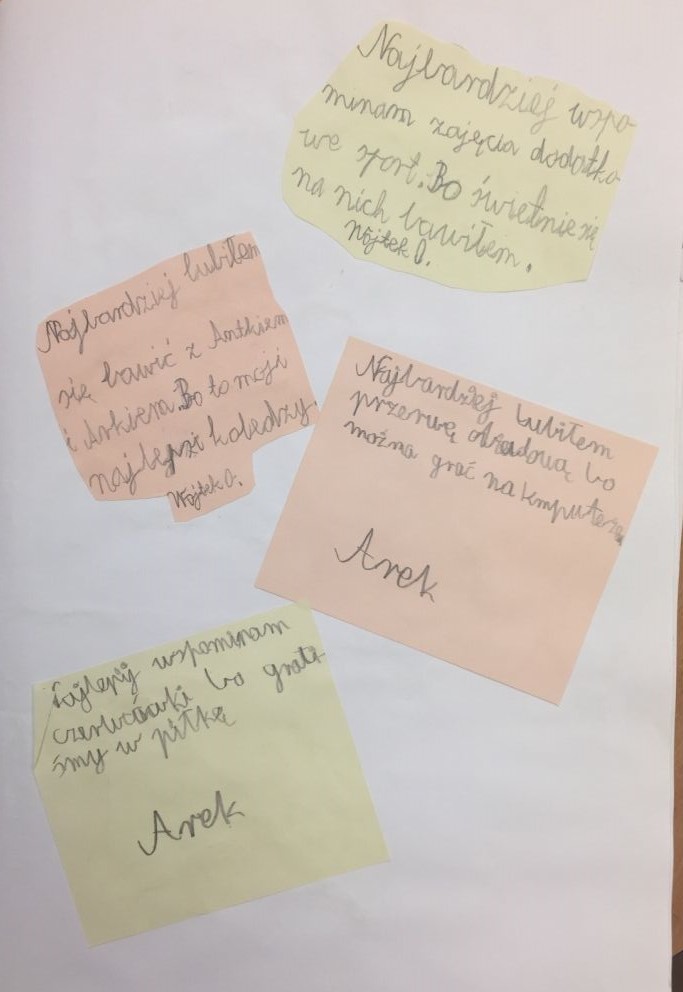 Najbardziej wspo
minam zajęcia dodatko
we sport. Bo świetnie się
na nich bawiłem.
Wojtek O.
Najbardziej lubiłem
się bawić z Antkiem
i Arkiem. Bo to moji
najlepsi koledzy.
Wojtek O.
Najbardziej lubiłem
przerwę obiadową bo
można grać na komputerze
Arek
wspominam
bo grali-
śmy w piłkę
Arek